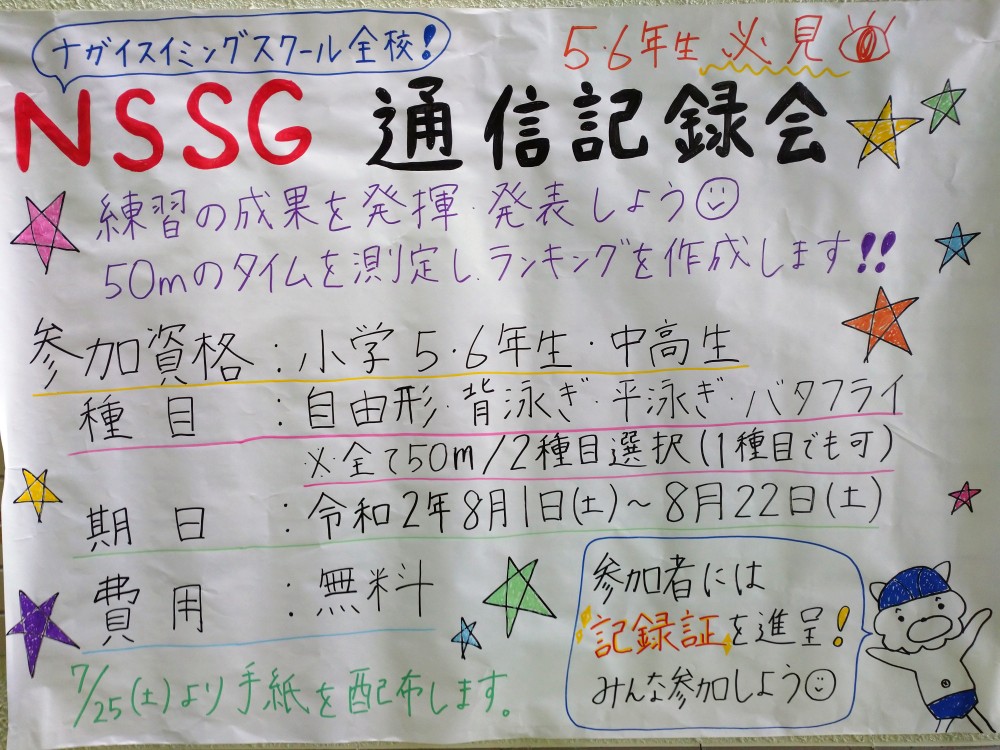 ナガイスイミングスクール全校!
5・6年生必見
NSSG 通信記録会
練習の成果を発揮・発表しよう
50mのタイムを測定し、ランキングを作成します!!
参加資格:小学5・6年生・中高生
種目:自由形・背泳ぎ・平泳ぎ・バタフライ
※全て50m/2種目選択(1種目でも可)
期日:令和2年8月1日(土)~8月22日(土)
費用:無料
7/25(土)より手紙を配布します。
参加者には
記録証を進呈!
みんな参加しよう